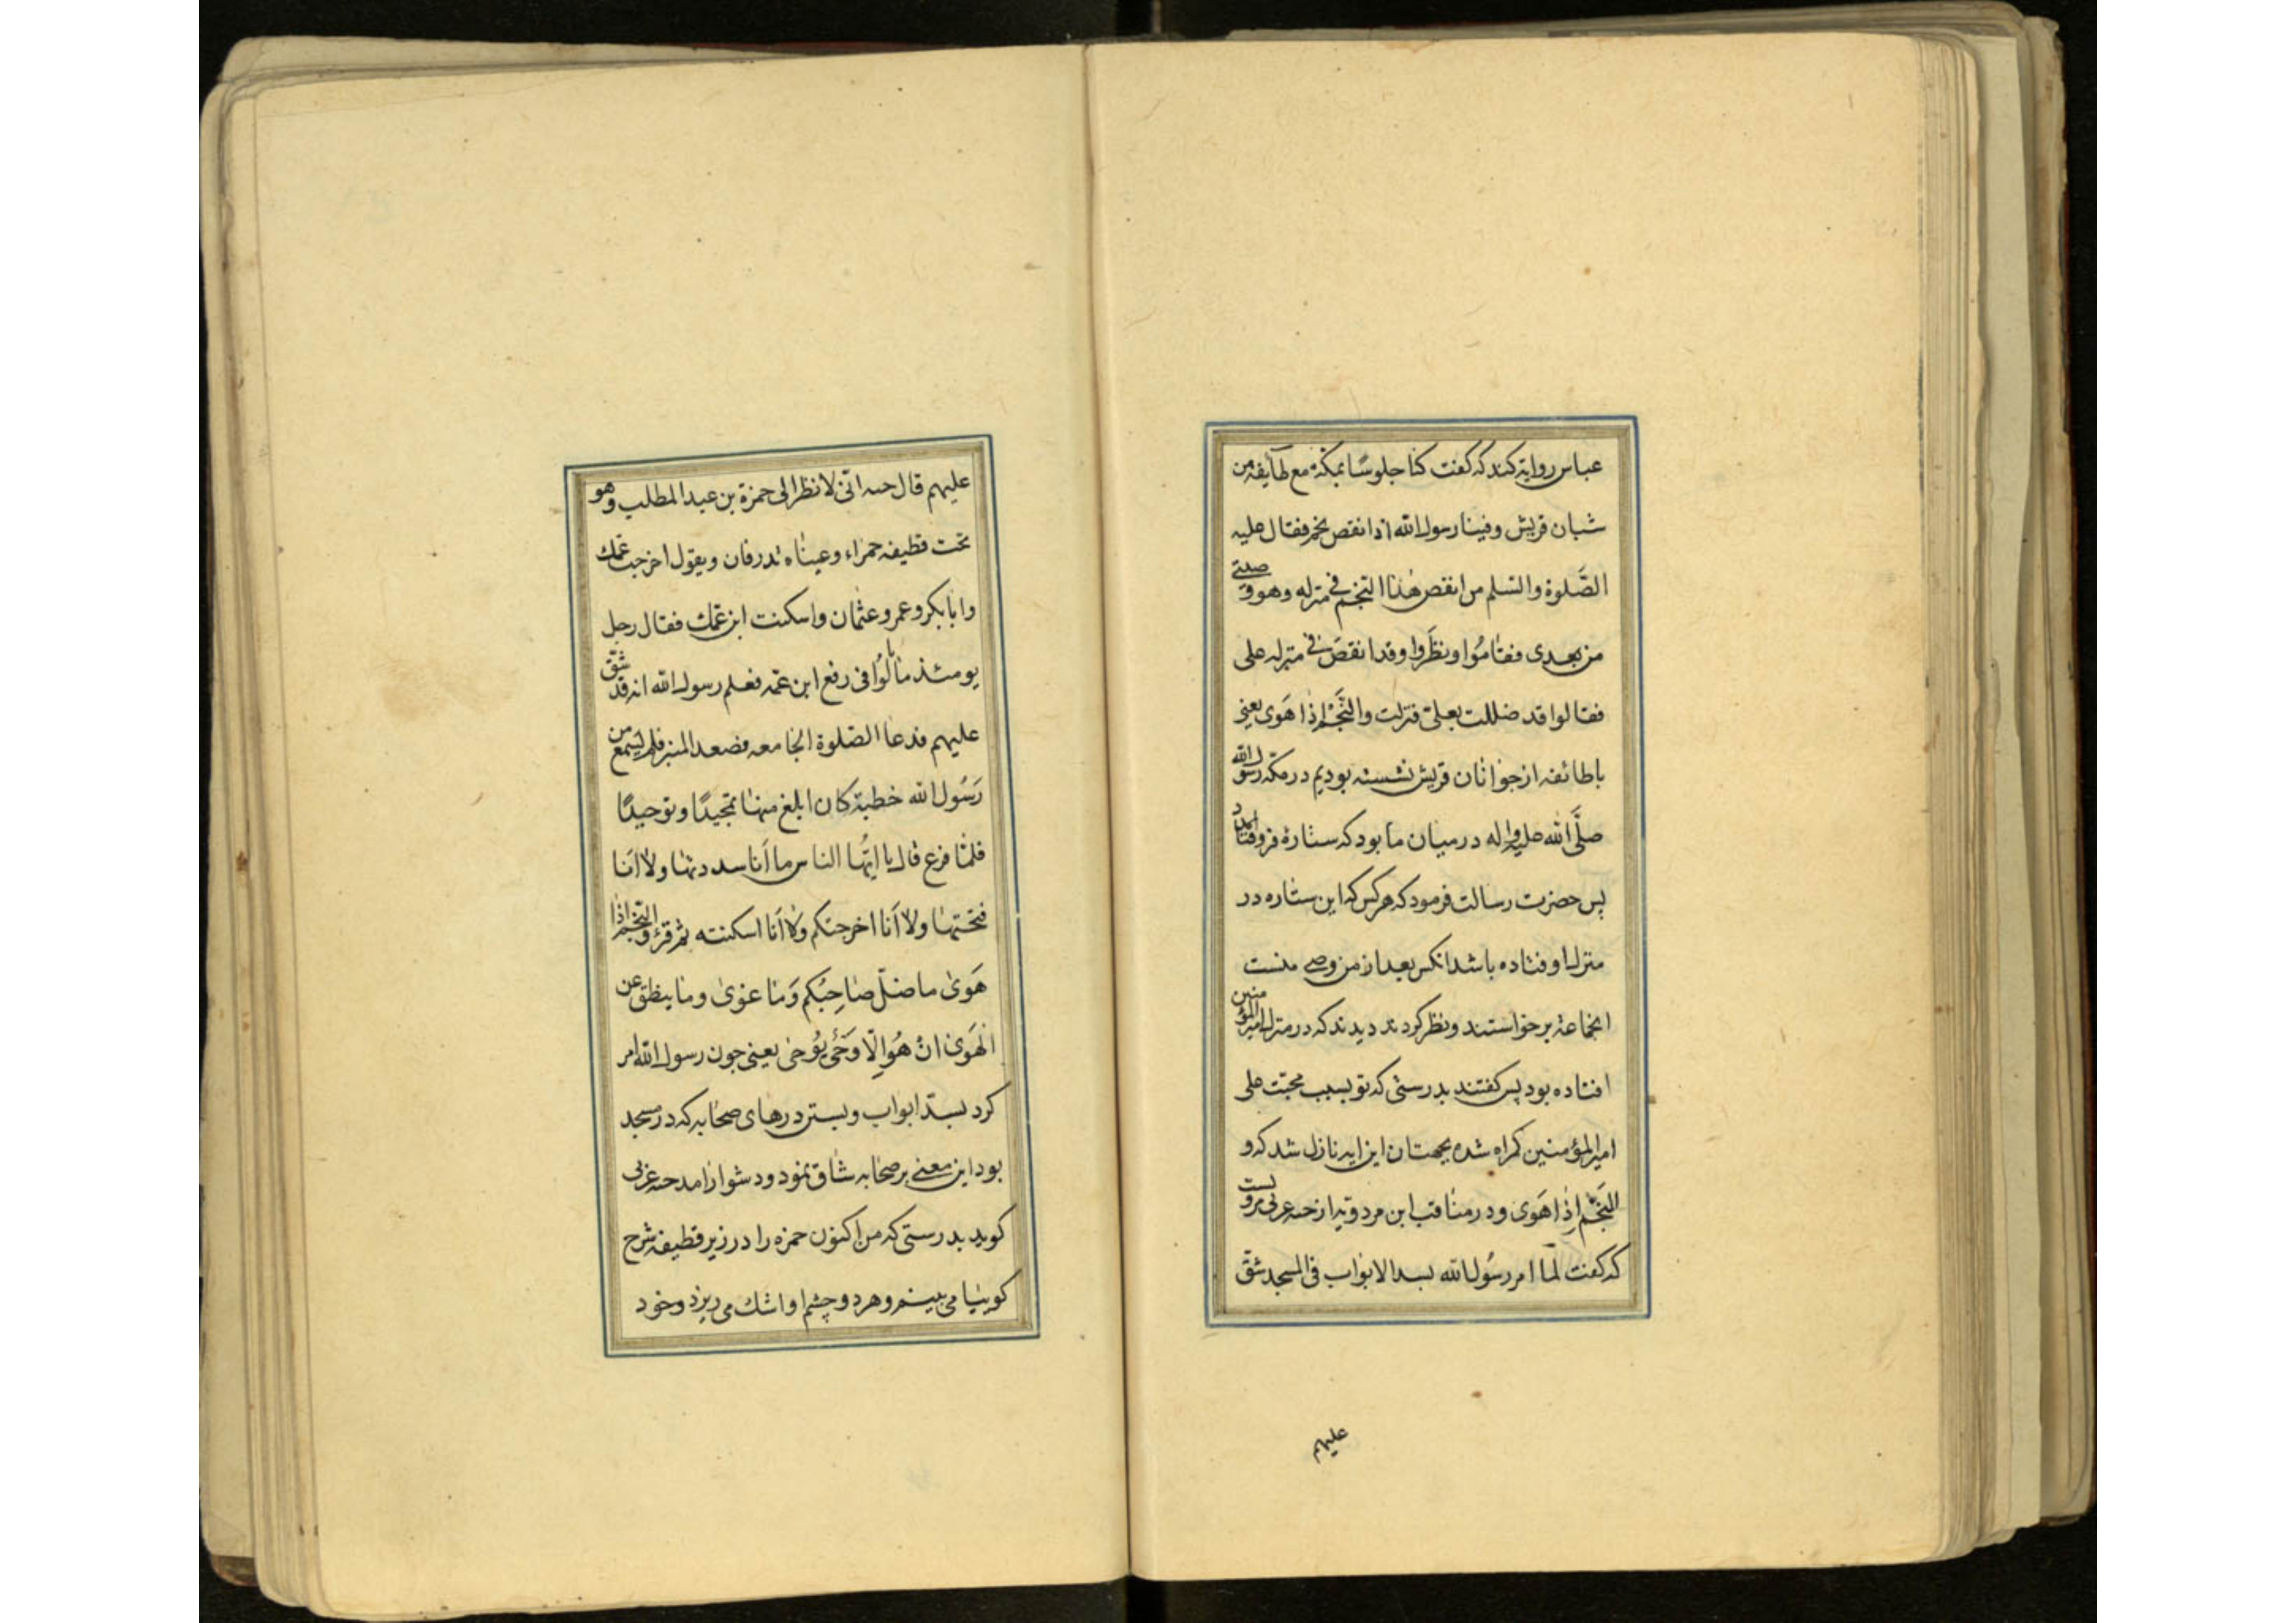 عباس روایة کند که گفت کنا جلوسًا بمکّة مع طایفه من
شبان قریش و فینا رسول الله اذا نقص نجم فقال علیه
الصَّلوة والسّلم من انقص هٰذا النّجم فی منزله وهو وصیّی
من بعدی فقامُوا ونظَروا وقد انقصَ فی منزله علی
فقالوا قد ضللت بعلیّ فنزلت والنَّجْم اِذا هَوی یعنی
با طائفه از جوانان قریش نشسته بودیم در مکّه رسول الله
صلَّی الله علیه واله در میان ما بود که ستاره فرو افتاد
پس حضرت رسالت فرمود که هر کس که این ستاره در
منزل او فتاده باشد انکس بعد از من وصی منست
انجماعة برخواستند و نظر کردند دیدند که در منزل امیر المؤمنین
افتاده بود پس گفتند بدرستی که تو بسبب محبّت علی
امیر المؤمنین گمراه شده بجهت ان این ایه نازل شد که و
النَّجْم اِذا هَوَی و در مناقب ابن مردویه از حبه عربی مرویست
که گفت لمّا امر رسُول الله بسد الابواب فی المسجد شقّ
علیهم
علیهم قال حبه انّی لانظر الی حمزة بن عبد المطلب وهو
تحت قطیفه حمراء وعیناه تدرفان ویقول اخرجت عمّک
وابا بکر وعمر وعثمان واسکنت ابن عمّک فقال رجل
یومئذ ما یالُوا فی رفع ابن عمّه فعلم رسول الله انه قد شقّ
علیهم فدعا الصّلوة الجامعه فصعد المنبر فلم یسمع من
رَسُول الله خطبة کان ابلغ منها تمجیدًا وتوحیدًا
فلمّا فرغ قال یا ایُّها الناس ما اَنا سددتها ولا اَنا
فتحتها ولا اَنا اخرجتکم ولا اَنا اسکنته ثم قرء والنّجم اذا
هَوَیٰ ما ضلّ صٰاحِبُکم وَما غویٰ وما ینطق عن
الهَوَیٰ انْ هُوَ اِلّا وَحْیٌ یُوحٰی یعنی چون رسول الله امر
کرد بسدّ ابواب و بستن درهای صحابه که در مسجد
بود این معنی بر صحابه شاق نمود و دشوار امد حبه عربی
کوید بدرستی که من اکنون حمزه را در زیر قطیفه سُرخ
کوییا می بینم و هر دو چشم او اشک می ریزد و خود